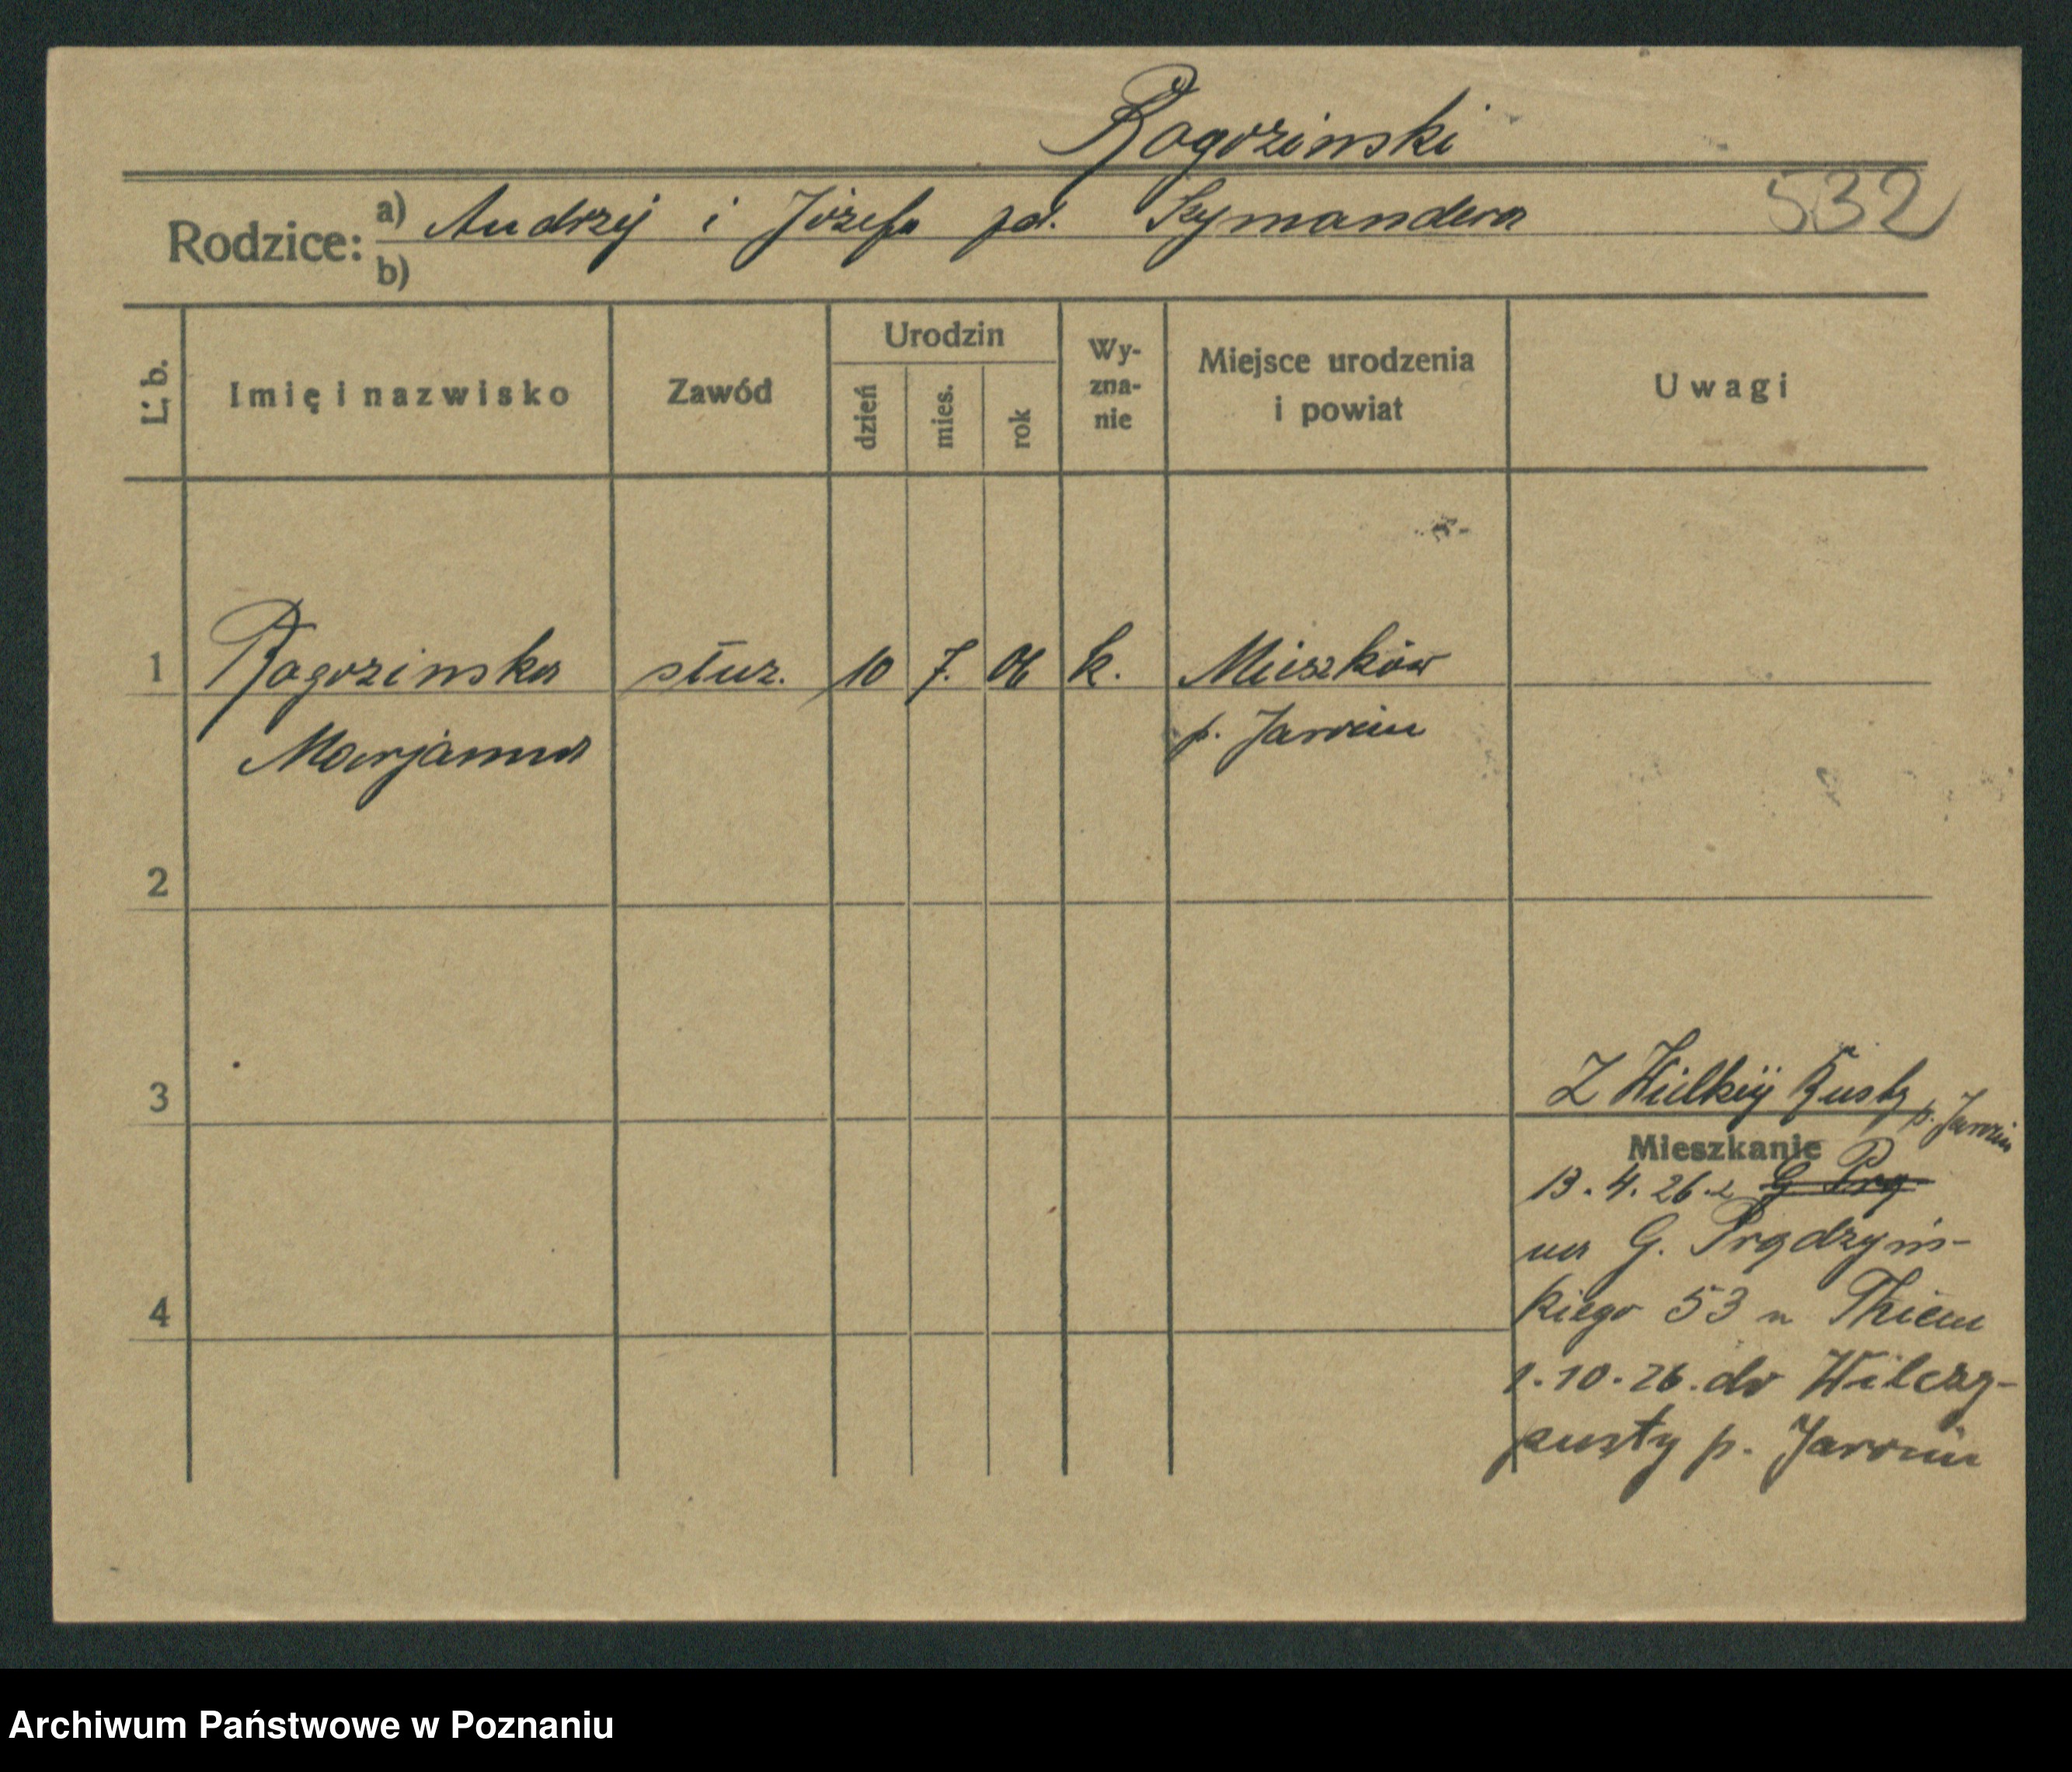 Rogozinski
532
Rodzice: a) Andrzej i Józefa pd. Szymandera
b)
L. b.
Imię i nazwisko
Zawód
Urodzin
dzień
mies.
rok
Wy-
zna-
nie
Miejsce urodzenia
i powiat
Uwagi
1 Rogozinska służ. 10 7. 06 k. Mieszków
Marjanna p. Jarocin
2
3
Z Wielkiej p. Jarocin
Mieszkanie
13.4.26 z G. Prą
na G. Prądzyńs-
kiego 53 u Thiem
1.10.26. do Wilczy-
pusty p. Jarocin
4
Archiwum Państwowe w Poznaniu